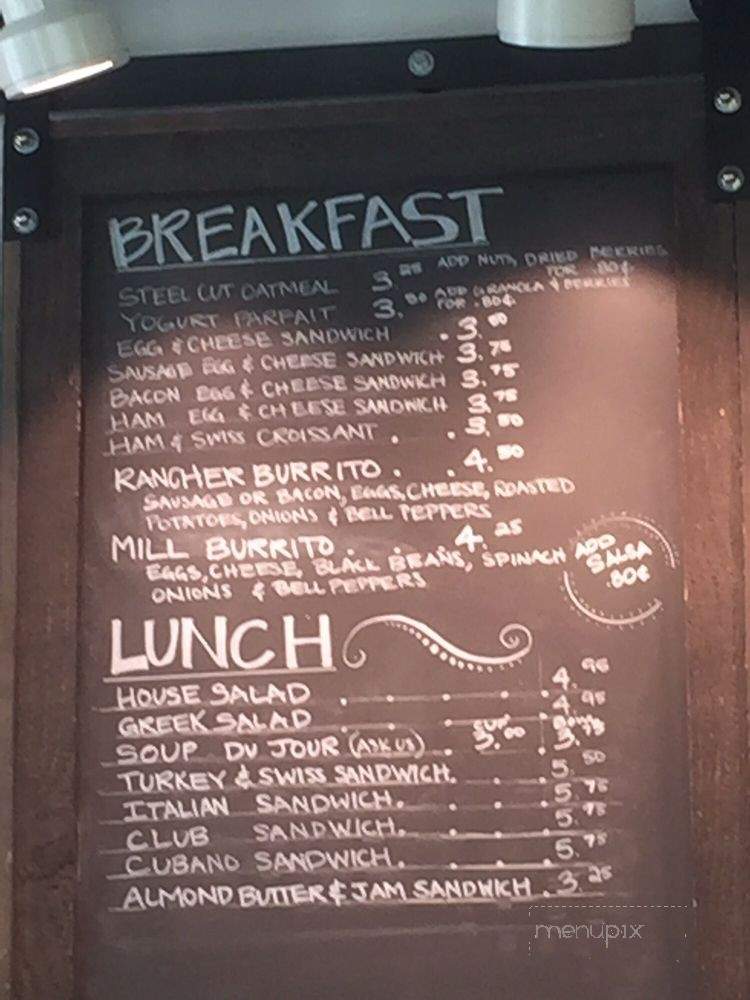 BREAKFAST
STEEL CUT OATMEAL 3.25 ADD NUTS, DRIED BERRIES FOR .80¢
YOGURT PARFAIT 3.50 ADD GRANOLA & BERRIES FOR .80¢
EGG & CHEESE SANDWICH . 3.50
SAUSAGE EGG & CHEESE SANDWICH 3.75
BACON EGG & CHEESE SANDWICH 3.75
HAM EGG & CHEESE SANDWICH 3.75
HAM & SWISS CROISSANT . . 3.50
RANCHER BURRITO . . 4.50
SAUSAGE OR BACON, EGGS, CHEESE, ROASTED
POTATOES, ONIONS & BELL PEPPERS
MILL BURRITO . . 4.25
EGGS, CHEESE, BLACK BEANS, SPINACH
ONIONS & BELL PEPPERS
ADD
SALSA
.80¢
LUNCH
HOUSE SALAD . . . . . 4.95
GREEK SALAD . . . . . 4.95
SOUP DU JOUR (ASK US) . CUP 3.00 BOWL 3.75
TURKEY & SWISS SANDWICH. . . 5.50
ITALIAN SANDWICH. . . . 5.75
CLUB SANDWICH. . . . 5.75
CUBANO SANDWICH. . . . 5.75
ALMOND BUTTER & JAM SANDWICH . 3.25
menupix